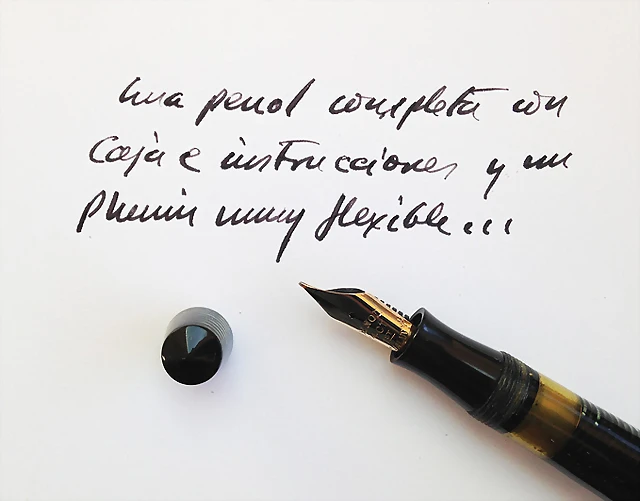 una penol completa con
caja e instrucciones y un
plumin muy flexible...